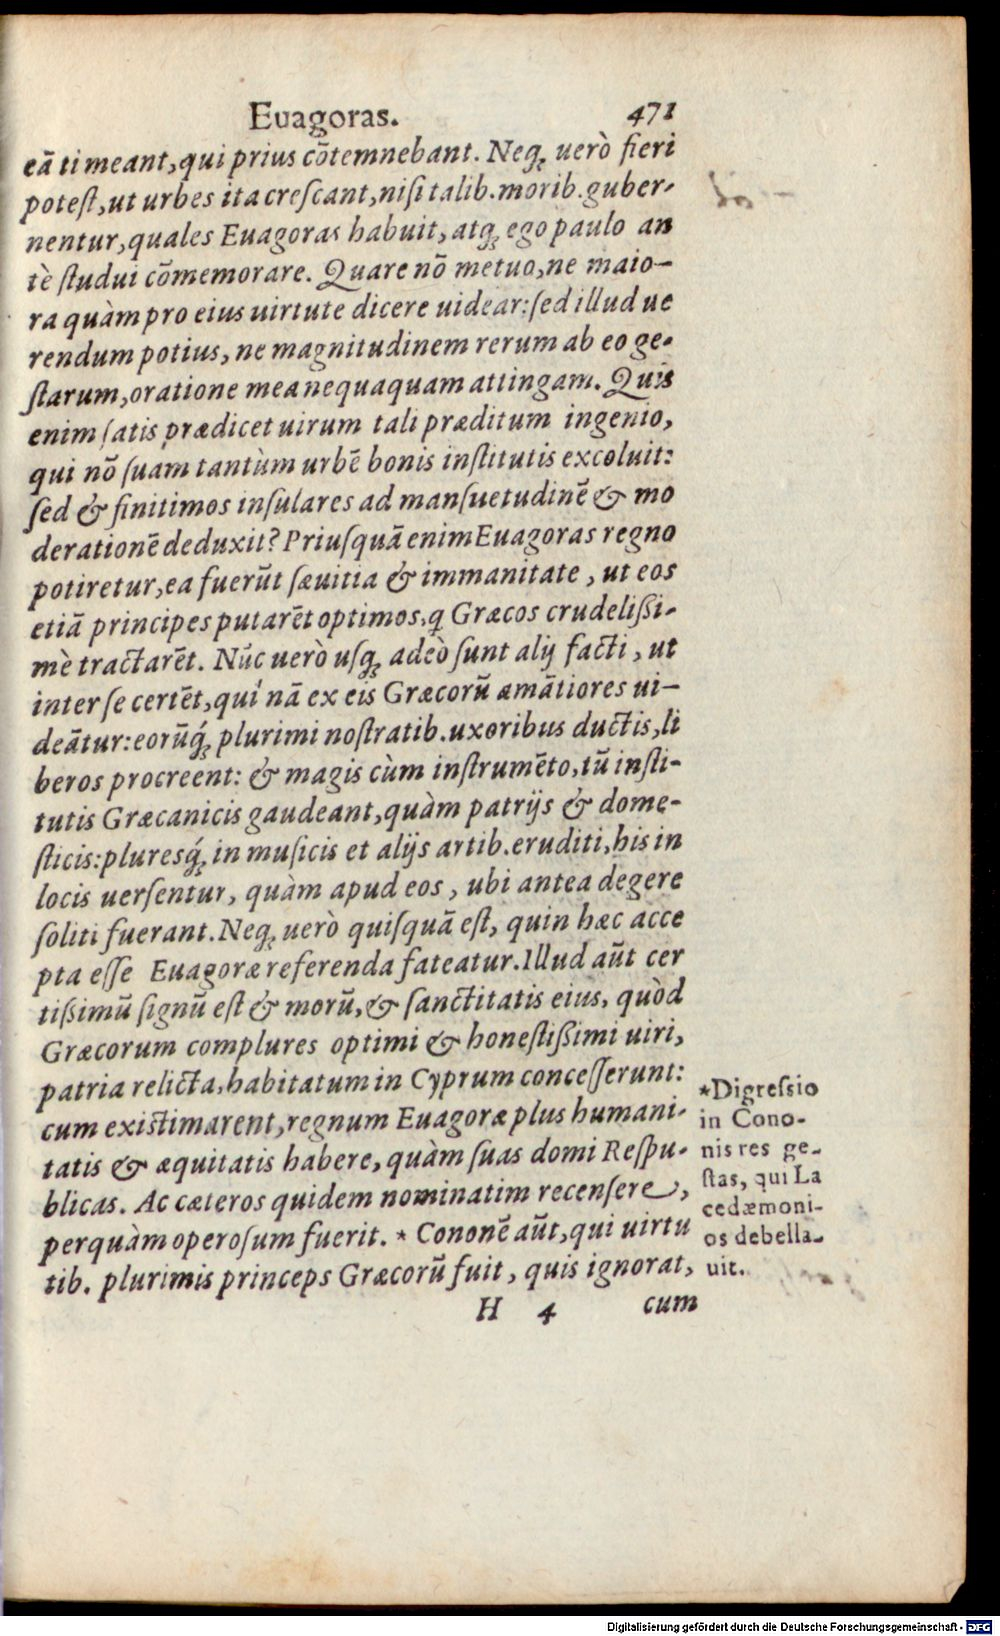 Euagoras. 471
eā timeant, qui prius cōtemnebant. Neq; uerò fieri
potest, ut urbes ita crescant, nisi talib. morib. guber-
nentur, quales Euagoras habuit, atq; ego paulo an
tè studui cōmemorare. Quare nō metuo, ne maio-
ra quàm pro eius uirtute dicere uidear: sed illud ue
rendum potius, ne magnitudinem rerum ab eo ge-
starum, oratione mea nequaquam attingam. Quis
enim satis prædicet uirum tali præditum ingenio,
qui nō suam tantùm urbē bonis institutis excoluit:
sed & finitimos insulares ad mansuetudinē & mo
derationē deduxit? Priusquā enim Euagoras regno
potiretur, ea fuerūt sæuitia & immanitate, ut eos
etiā principes putarēt optimos, q Græcos crudelißi-
mè tractarēt. Nūc uerò usq; adeò sunt alij facti, ut
inter se certēt, qui nā ex eis Græcorū amātiores ui-
deātur: eorūq́; plurimi nostratib. uxoribus ductis, li
beros procreent: & magis cùm instrumēto, tū insti-
tutis Græcanicis gaudeant, quàm patrijs & dome-
sticis: pluresq́; in musicis et alijs artib. eruditi, his in
locis uersentur, quàm apud eos, ubi antea degere
soliti fuerant. Neq; uerò quisquā est, quin hæc acce
pta esse Euagoræ referenda fateatur. Illud aūt cer
tißimū signū est & morū, & sanctitatis eius, quòd
Græcorum complures optimi & honestißimi uiri,
patria relicta, habitatum in Cyprum concesserunt:
cum existimarent, regnum Euagoræ plus humani-
tatis & æquitatis habere, quàm suas domi Respu-
blicas. Ac cæteros quidem nominatim recensere,
perquàm operosum fuerit. * Cononē aūt, qui uirtu
tib. plurimis princeps Græcorū fuit, quis ignorat,
H 4 cum
*Digressio
in Cono-
nis res ge-
stas, qui La
cedæmoni-
os debella-
uit.
Digitalisierung gefördert durch die Deutsche Forschungsgemeinschaft - DFG